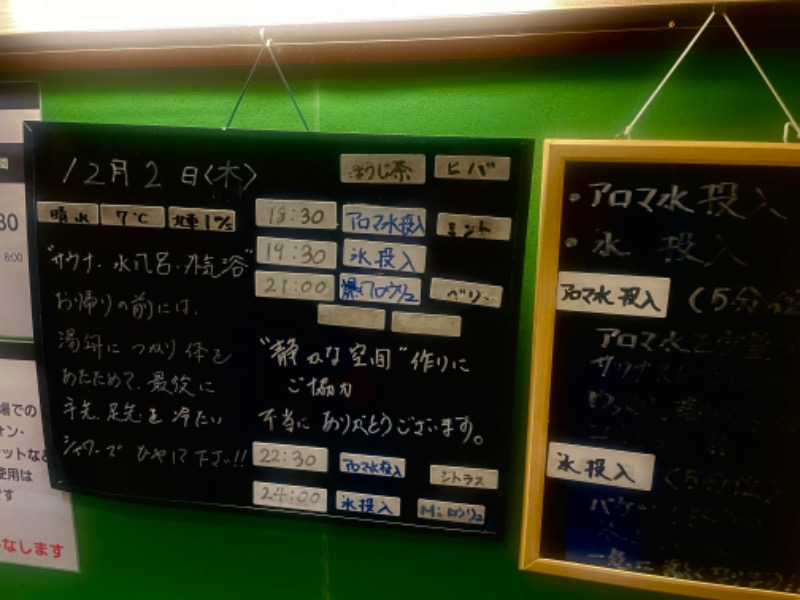 12月2日(木)
ほうじ茶 ヒバ
晴れ 7℃ 北東1㎧
18:30 アロマ水投入 ミント
19:30 氷投入
21:00 爆アロウリュ ベリー
"サウナ、水風呂、外気浴"
お帰りの前には、
湯舟につかり体を
あたためて、最後に
手先、足先を冷たい
シャワーでひやして下さい!!
"静かな空間"作りに
ご協力
本当にありがとうございます。
22:30 アロマ水投入 シトラス
24:00 氷投入 M:ロウリュ
・アロマ水投入
・氷 投入
アロマ水投入 (5分位
アロマ水を少量
氷投入 (5分位
30
8:00
場での
ォン・
ットなど
使用は
です
なします